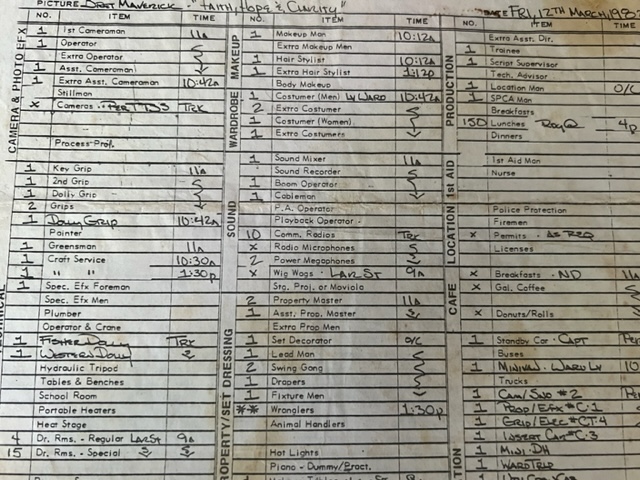 PICTURE BRET MAVERICK - "FAITH, HOPE & CLARITY"
DATE FRI, 12TH MARCH, 198
NO. ITEM TIME
CAMERA & PHOTO EFX
1 1st Cameraman 11A
1 Operator
Extra Operator
1 Asst. Cameraman
1 Extra Asst. Cameraman 10:42A
Stillman
X Cameras - PER TTDS TRK
Process-Prof.
1 Key Grip 11A
1 2nd Grip
1 Dolly Grip
2 Grips
1 Dolly GRIP 10:42A
Painter
1 Greensman 11A
1 Craft Service 10:30A
1 " " 1:30P
1 Spec. Efx Foreman
Spec. Efx Men
Plumber
Operator & Crane
1 FISHER DOLLY TRK
1 WESTERN DOLLY
Hydraulic Tripod
Tables & Benches
School Room
Portable Heaters
Heat Stage
4 Dr. Rms. - Regular LAR ST 9A
15 Dr. Rms. - Special
NO. ITEM TIME
MAKEUP
1 Makeup Man 10:12A
Extra Makeup Men
1 Hair Stylist 10:12A
1 Extra Hair Stylist 1:12P
Body Makeup
WARDROBE
1 Costumer (Men) LV WARD 10:42A
2 Extra Costumer
1 Costumer (Women)
1 Extra Costumers
SOUND
1 Sound Mixer 11A
Sound Recorder
1 Boom Operator
1 Cableman
P.A. Operator
Playback Operator
10 Comm. Radios TRK
X Radio Microphones
2 Power Megaphones
X Wig Wags - LAR ST 9A
Stg. Proj. or Moviola
PROPERTY/SET DRESSING
2 Property Master 11A
1 Asst. Prop. Master
Extra Prop Men
1 Set Decorator O/C
1 Lead Man
2 Swing Gang
1 Drapers
1 Fixture Men
** Wranglers 1:30P
Animal Handlers
Hot Lights
Piano - Dummy/Pract.
NO. ITEM
PRODUCTION
Extra Asst. Dir.
1 Trainee
1 Script Supervisor
Tech. Advisor
1 Location Man O/C
1 SPCA Man
Breakfasts
150 Lunches 4P
Dinners
1st AID
1st Aid Man
Nurse
LOCATION
Police Protection
Firemen
X Permits - AS REQ
Licenses
CAFE
X Breakfasts - ND 11A
X Gal. Coffee
X Donuts/Rolls
1 Standby Car - CAPT
Buses
1 MINIVAN - WARD LV 10
Trucks
1 CAM/SND #2
1 PROP/EFX #C-1
1 GRIP/ELEC #CT-4
1 INSERT CAR #C-3
1 MINI DH
1 WARD TRLR